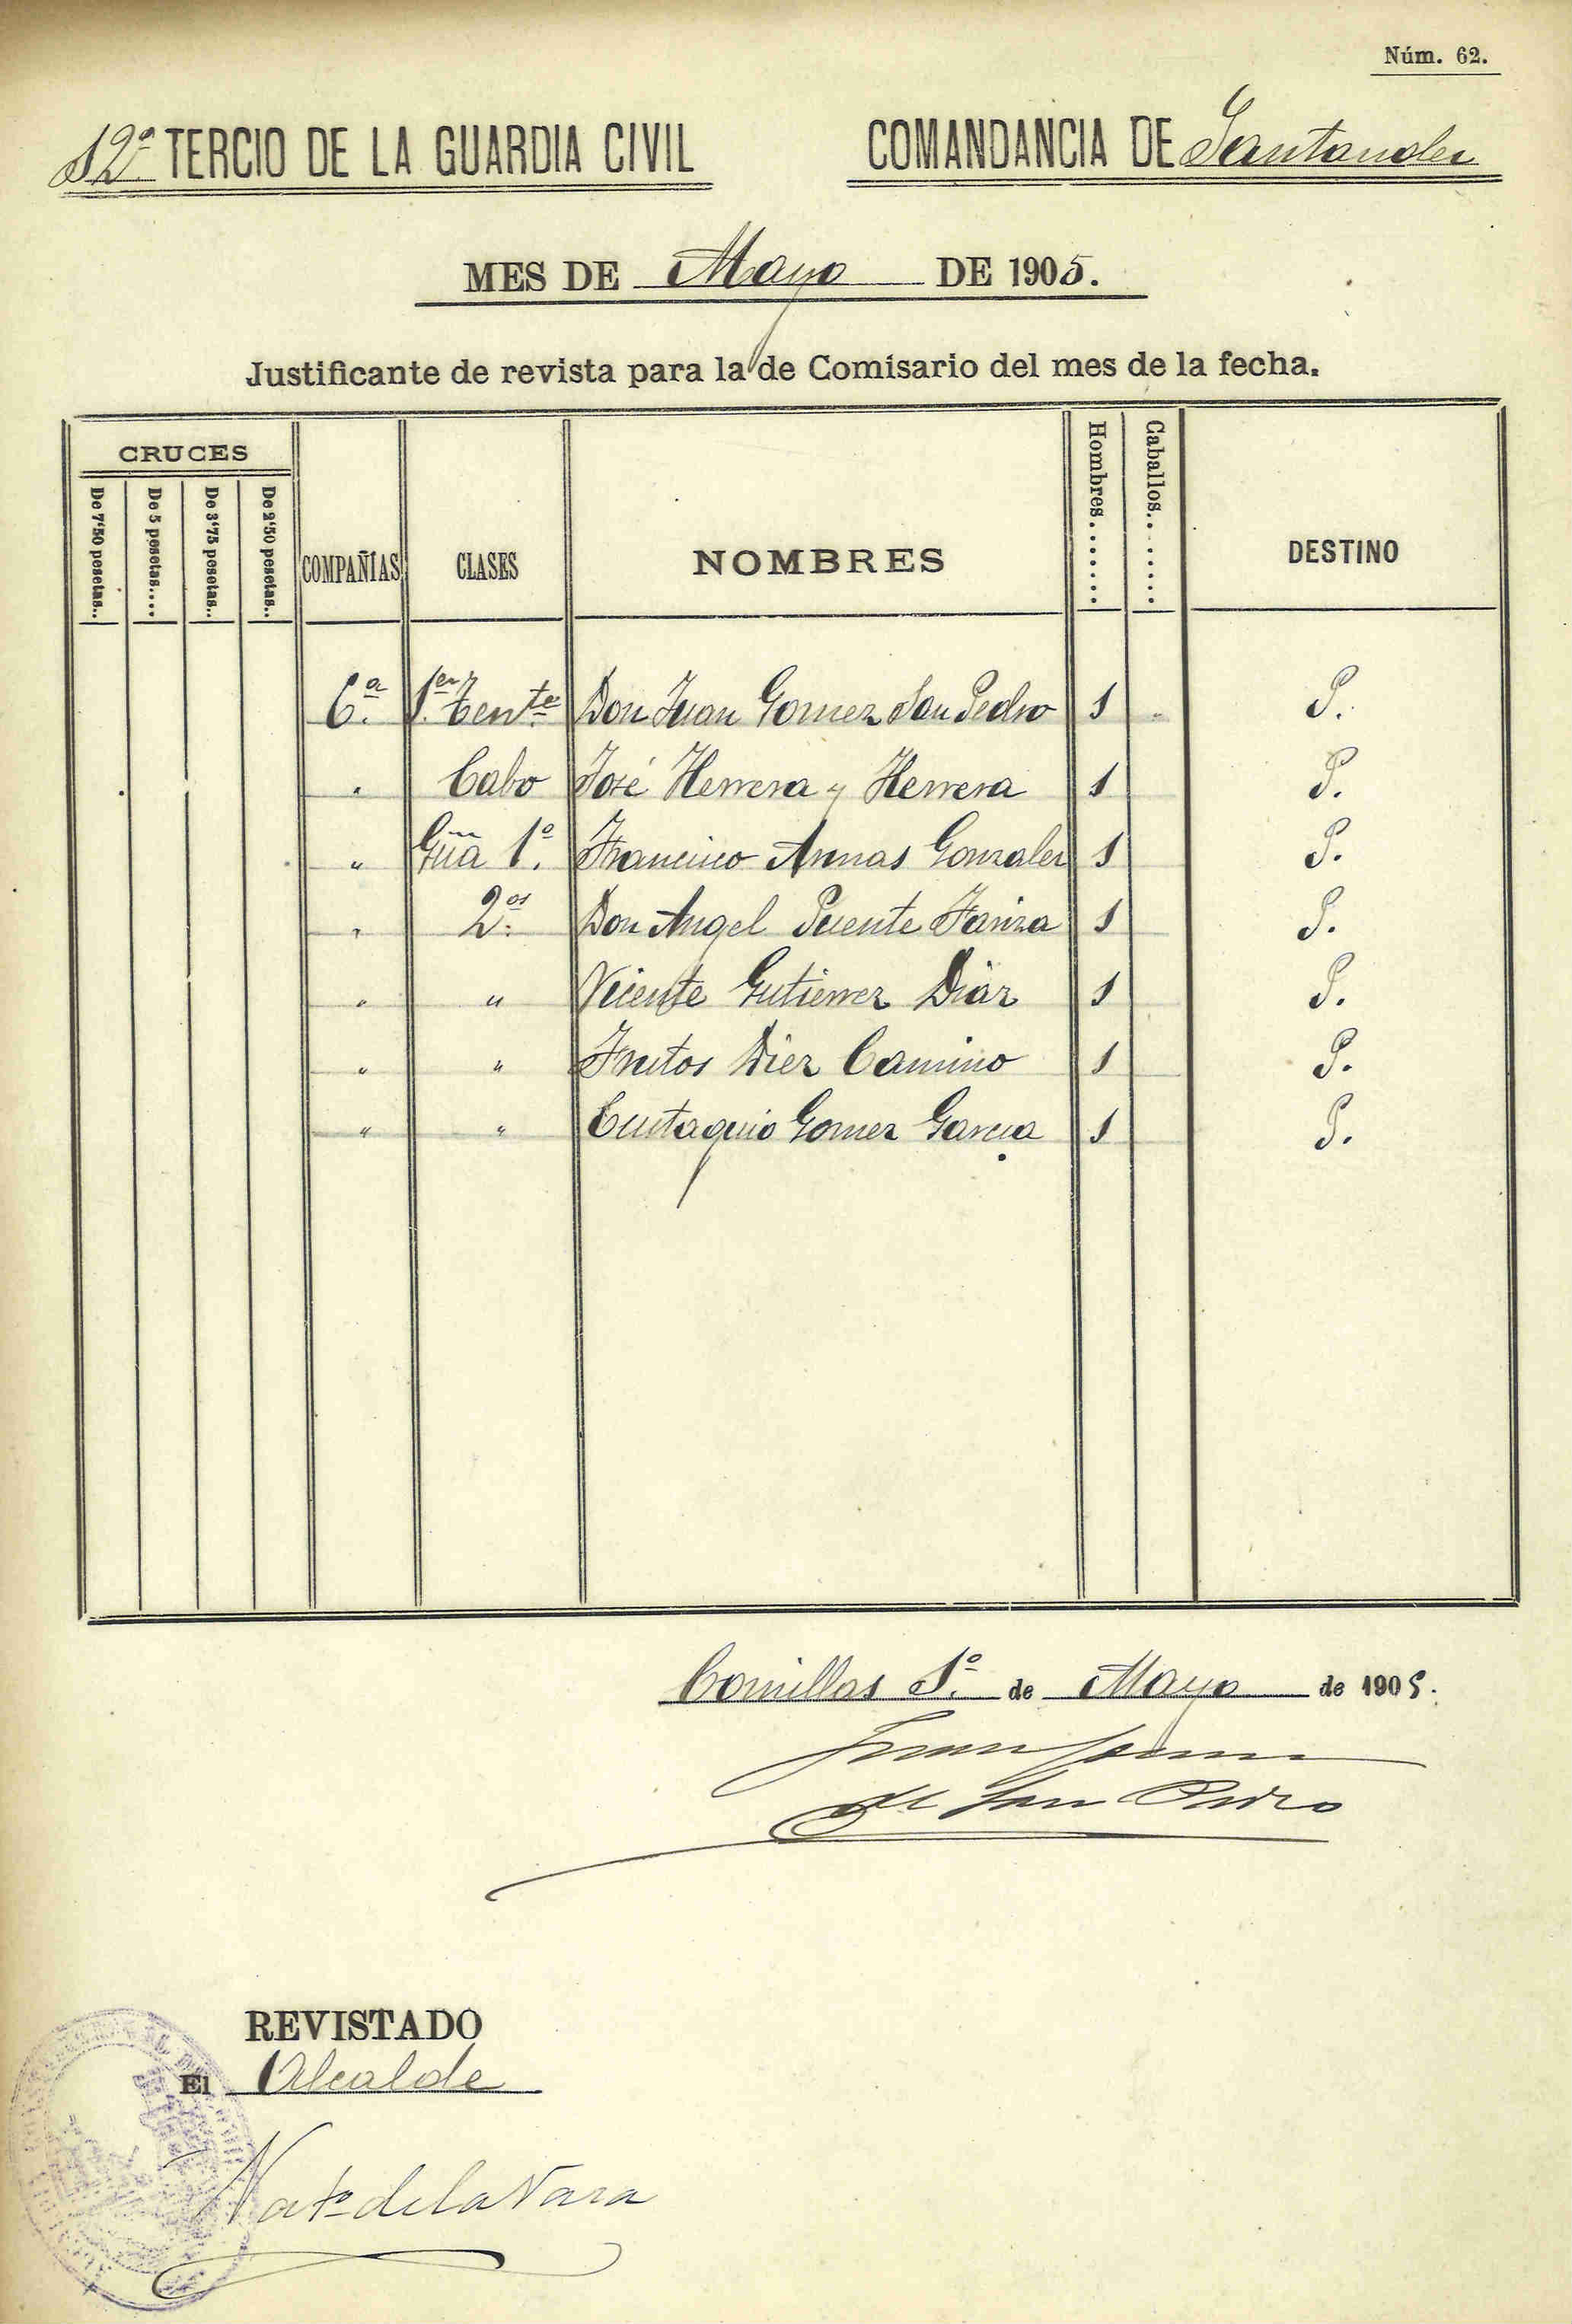 Núm. 62.
12º TERCIO DE LA GUARDIA CIVIL COMANDANCIA DE Santander
MES DE Mayo DE 1905.
Justificante de revista para la de Comisario del mes de la fecha.
CRUCES
De 7'50 pesetas..
De 5 pesetas....
De 3'75 pesetas..
De 2'50 pesetas..
COMPAÑÍAS
CLASES
NOMBRES
Hombres.......
Caballos........
DESTINO
6ª 1er Tente Don Juan Gomez San Pedro 1 " P.
" Cabo José Herrera y Herrera 1 P.
" Gũa 1º Francisco Armas Gonzalez 1 P.
" 2os Don Angel Puente Fariza 1 P.
" " Vicente Gutierrez Diaz 1 P.
" " Frutos Diez Camino 1 P.
" " Eustaquio Gomez Garcia 1 P.
Comillas 1º de Mayo de 1905.
Juan Gomez
de San Pedro
REVISTADO
El Alcalde
de la Vara